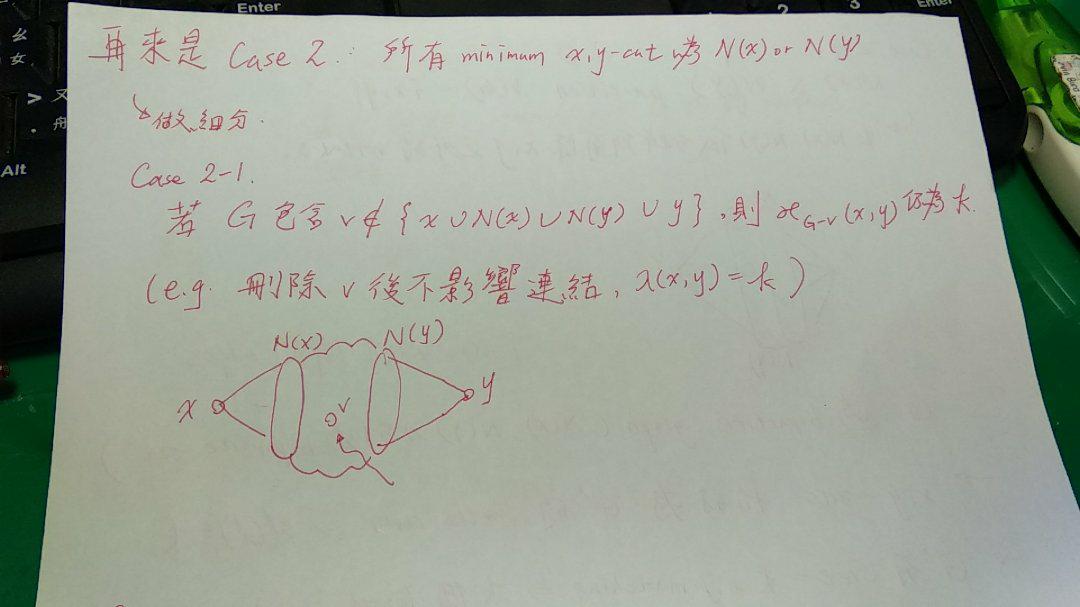 Enter
2
3
Enter
ㄠ
女
>
又
.
舟
Alt
再来是 Case 2: 所有 minimum x,y-cut 為 N(x) or N(y)
↳做細分.
Case 2-1.
若 G 包含 v ∉ {x ∪ N(x) ∪ N(y) ∪ y}, 則 κ_{G-v}(x,y) 仍為 k.
(e.g. 刪除 v 後不影響連結, λ(x,y) = k)
N(x) N(y)
x v y